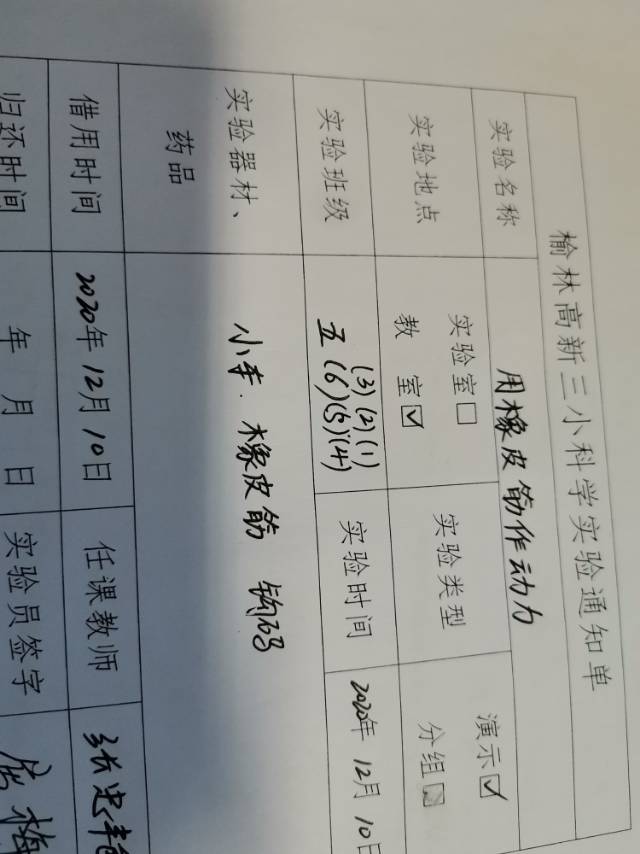 榆林高新三小科学实验通知单
实验名称 用橡皮筋作动力
实验地点 实验室☐ 教 室☑ 实验类型 演示☑ 分组☐
实验班级 五 (3)(2)(1) (6)(5)(4) 实验时间 2020年12月10日
实验器材、药品 小车. 橡皮筋 钩码
借用时间 2020年12月10日 任课教师
归还时间 年 月 日 实验员签字